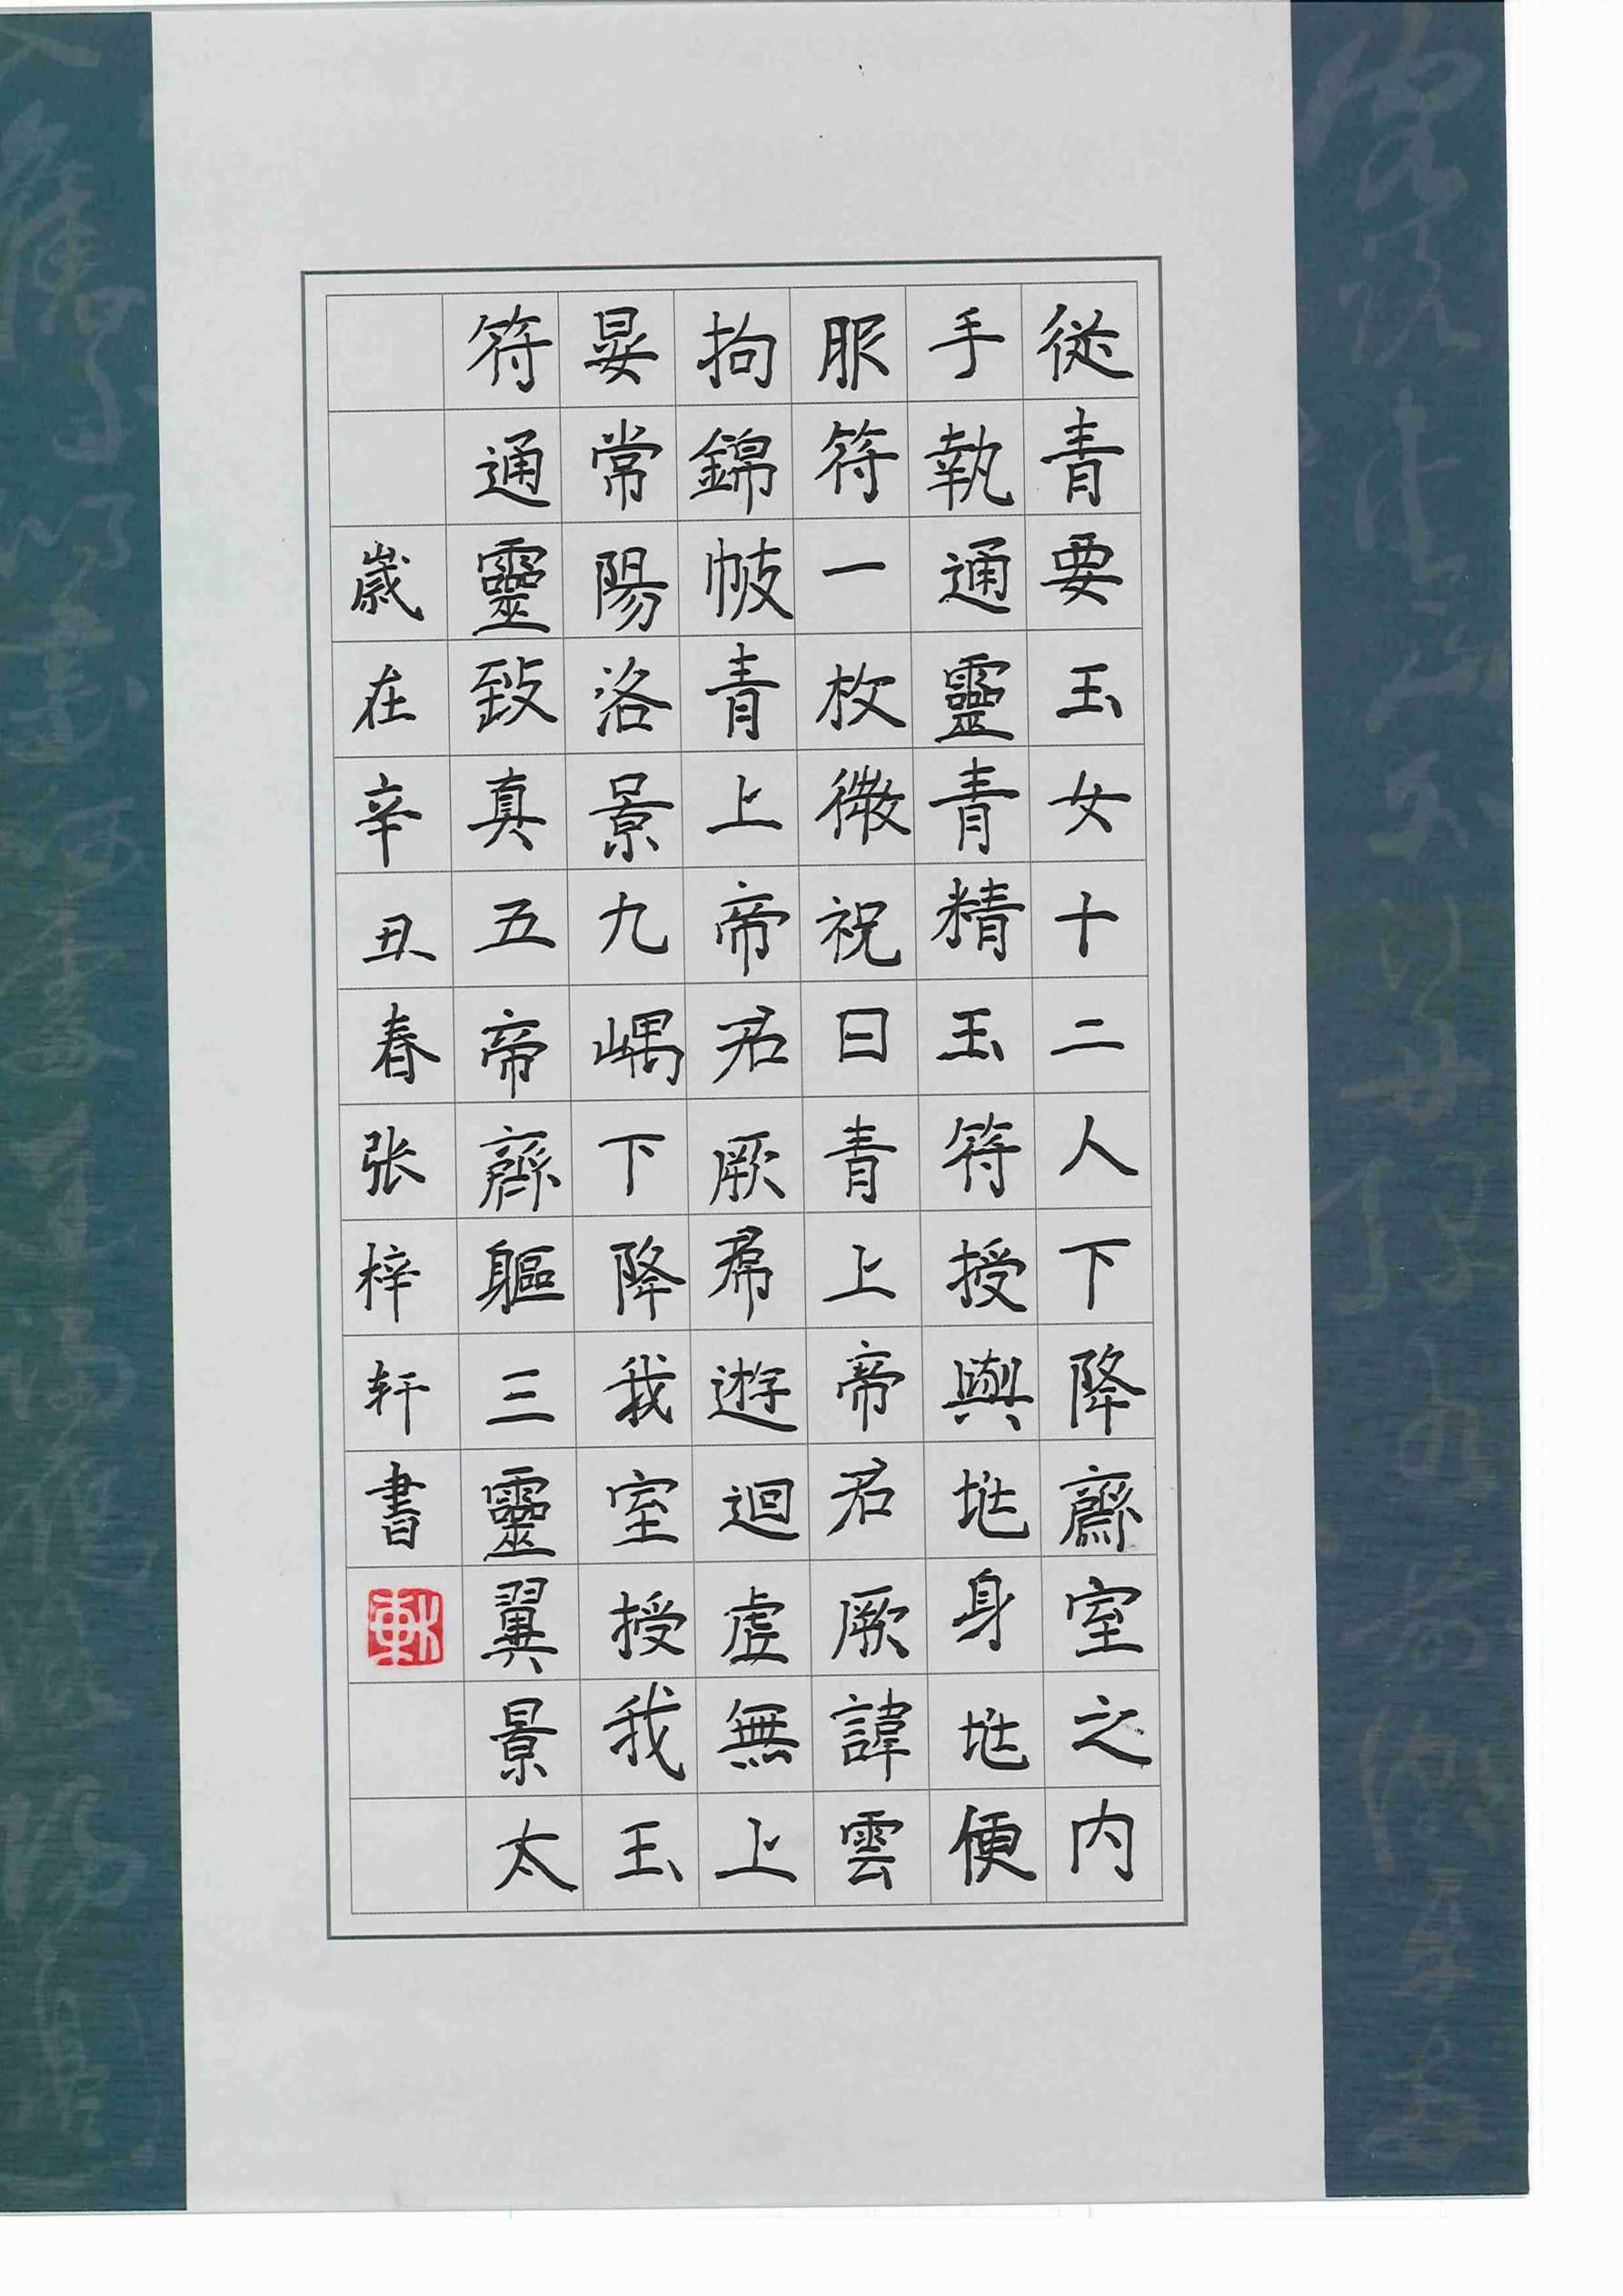 從青要玉女十二人下降齋室之内
手執通靈青精玉符授與兆身兆便
服符一枚微祝曰青上帝君厥諱雲
拘錦帔青上帝君厥帬遊迴虛無上
晏常陽洛景九嵎下降我室授我玉
符通靈致真五帝齊軀三靈翼景太
歲在辛丑春张梓轩書